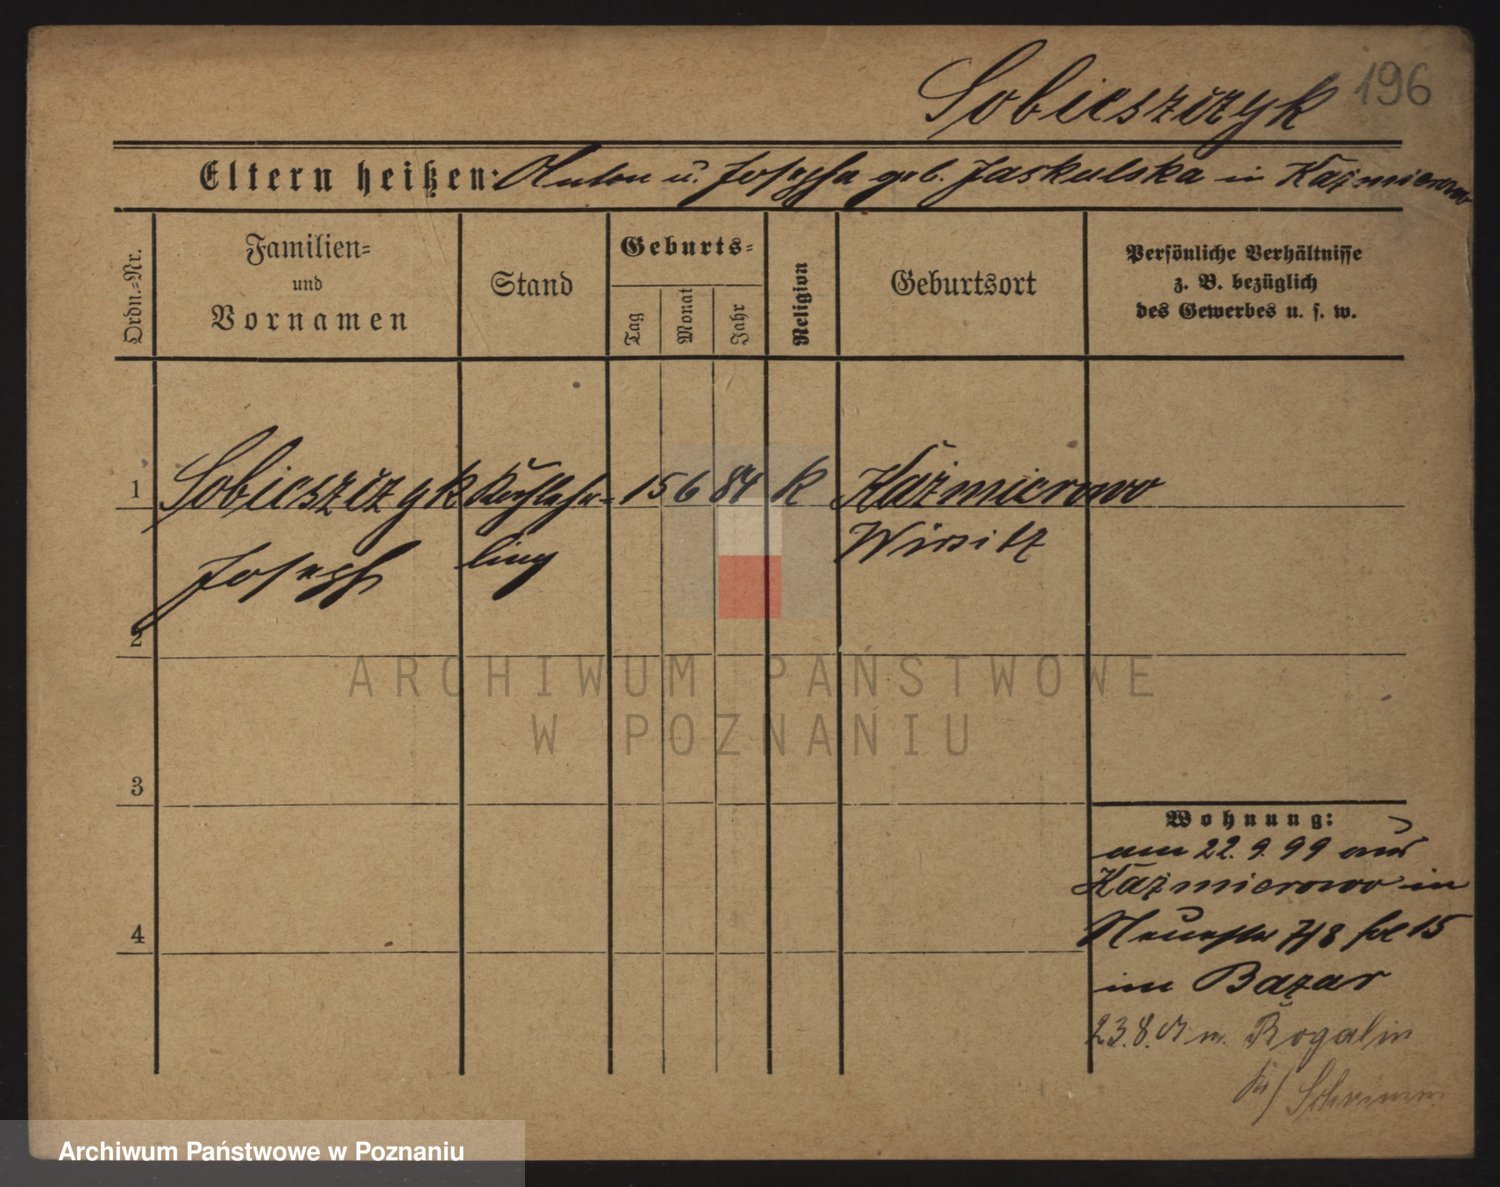 Sobieszczyk 196
Eltern heißen: Anton u. Josepha geb. Jaskulska in Kaźmierowo
Ordn.=Nr.
Familien=
und
Vornamen
Stand
Geburts=
Tag
Monat
Jahr
Religion
Geburtsort
Persönliche Verhältnisse
z. B. bezüglich
des Gewerbes u. s. w.
1 Sobieszczyk Kochlehr= 15 6 84 k Kaźmierowo
Joseph ling Wirsitz
2
3
4
Wohnung:
am 22.9.99 aus
Kaźmierowo in
Neuestr 7/8 bei 15
im Bazar
23.8.01 n. Rogalin
Kr/ Schrimm
ARCHIWUM PAŃSTWOWE
W POZNANIU
Archiwum Państwowe w Poznaniu